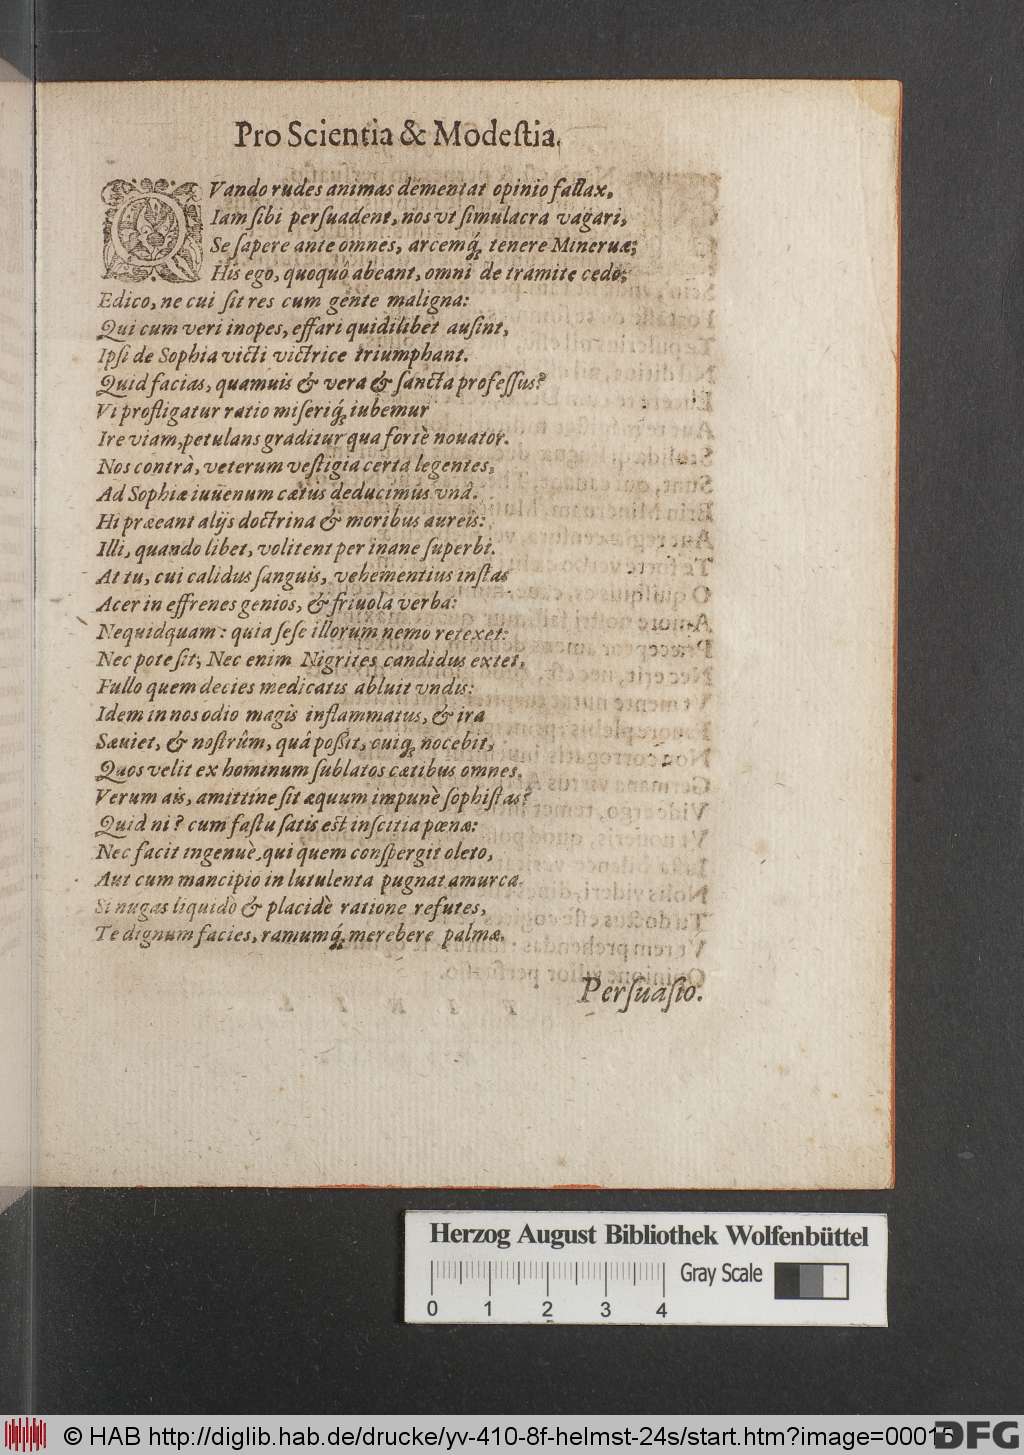 Pro Scientia & Modeſtia.
QVando rudes animas dementat opinio fallax,
Iam ſibi perſuadent, nos vt ſimulacra vagari,
Se ſapere ante omnes, arcemq́; tenere Mineruæ;
His ego, quoquò abeant, omni de tramite cedo;
Edico, ne cui ſit res cum gente maligna:
Qui cum veri inopes, effari quidilibet auſint,
Ipſi de Sophia victi victrice triumphant.
Quid facias, quamuis & vera & ſancta profeſſus?
Vi profligatur ratio miſeriq́; iubemur
Ire viam, petulans graditur qua fortè nouator.
Nos contrà, veterum veſtigia certa legentes,
Ad Sophiæ iuuenum cætus deducimus vnâ.
Hi præeant alijs doctrina & moribus aureis:
Illi, quando libet, volitent per inane ſuperbi.
At tu, cui calidus ſanguis, vehementius inſtas
Acer in effrenes genios, & friuola verba:
Nequidquam: quia ſeſe illorum nemo retexet:
Nec pote ſit; Nec enim Nigrites candidus extet,
Fullo quem decies medicatis abluit vndis:
Idem in nos odio magis inflammatus, & ira
Sæuiet, & noſtrûm, quâ poſſit, cuiq; nocebit,
Quos velit ex hominum ſublatos cætibus omnes.
Verum ais, amittine ſit æquum impunè ſophiſtas?
Quid ni? cum faſtu ſatis eſt inſcitia pœnæ:
Nec facit ingenuè, qui quem conſpergit oleto,
Aut cum mancipio in lutulenta pugnat amurca.
Si nugas liquidò & placidè ratione refutes,
Te dignum facies, ramumq́; merebere palmæ.
Perſuaſio.
Herzog August Bibliothek Wolfenbüttel
Gray Scale
0 1 2 3 4
© HAB http://diglib.hab.de/drucke/yv-410-8f-helmst-24s/start.htm?image=00015
DFG